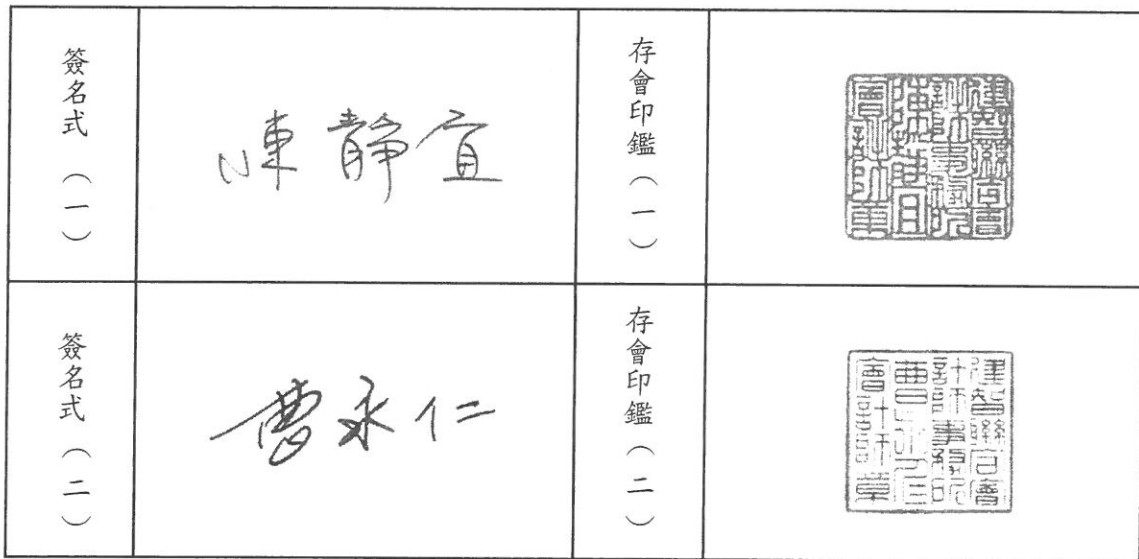 簽名式（一）
陳靜宜
存會印鑑（一）
建智聯合會
計師事務所
陳靜宜
會計師章
簽名式（二）
曹永仁
存會印鑑（二）
建智聯合會
計師事務所
曹永仁
會計師章